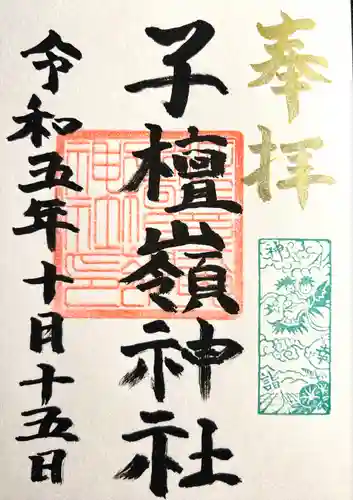 奉拝
子檀嶺神社
令和五年十月十五日